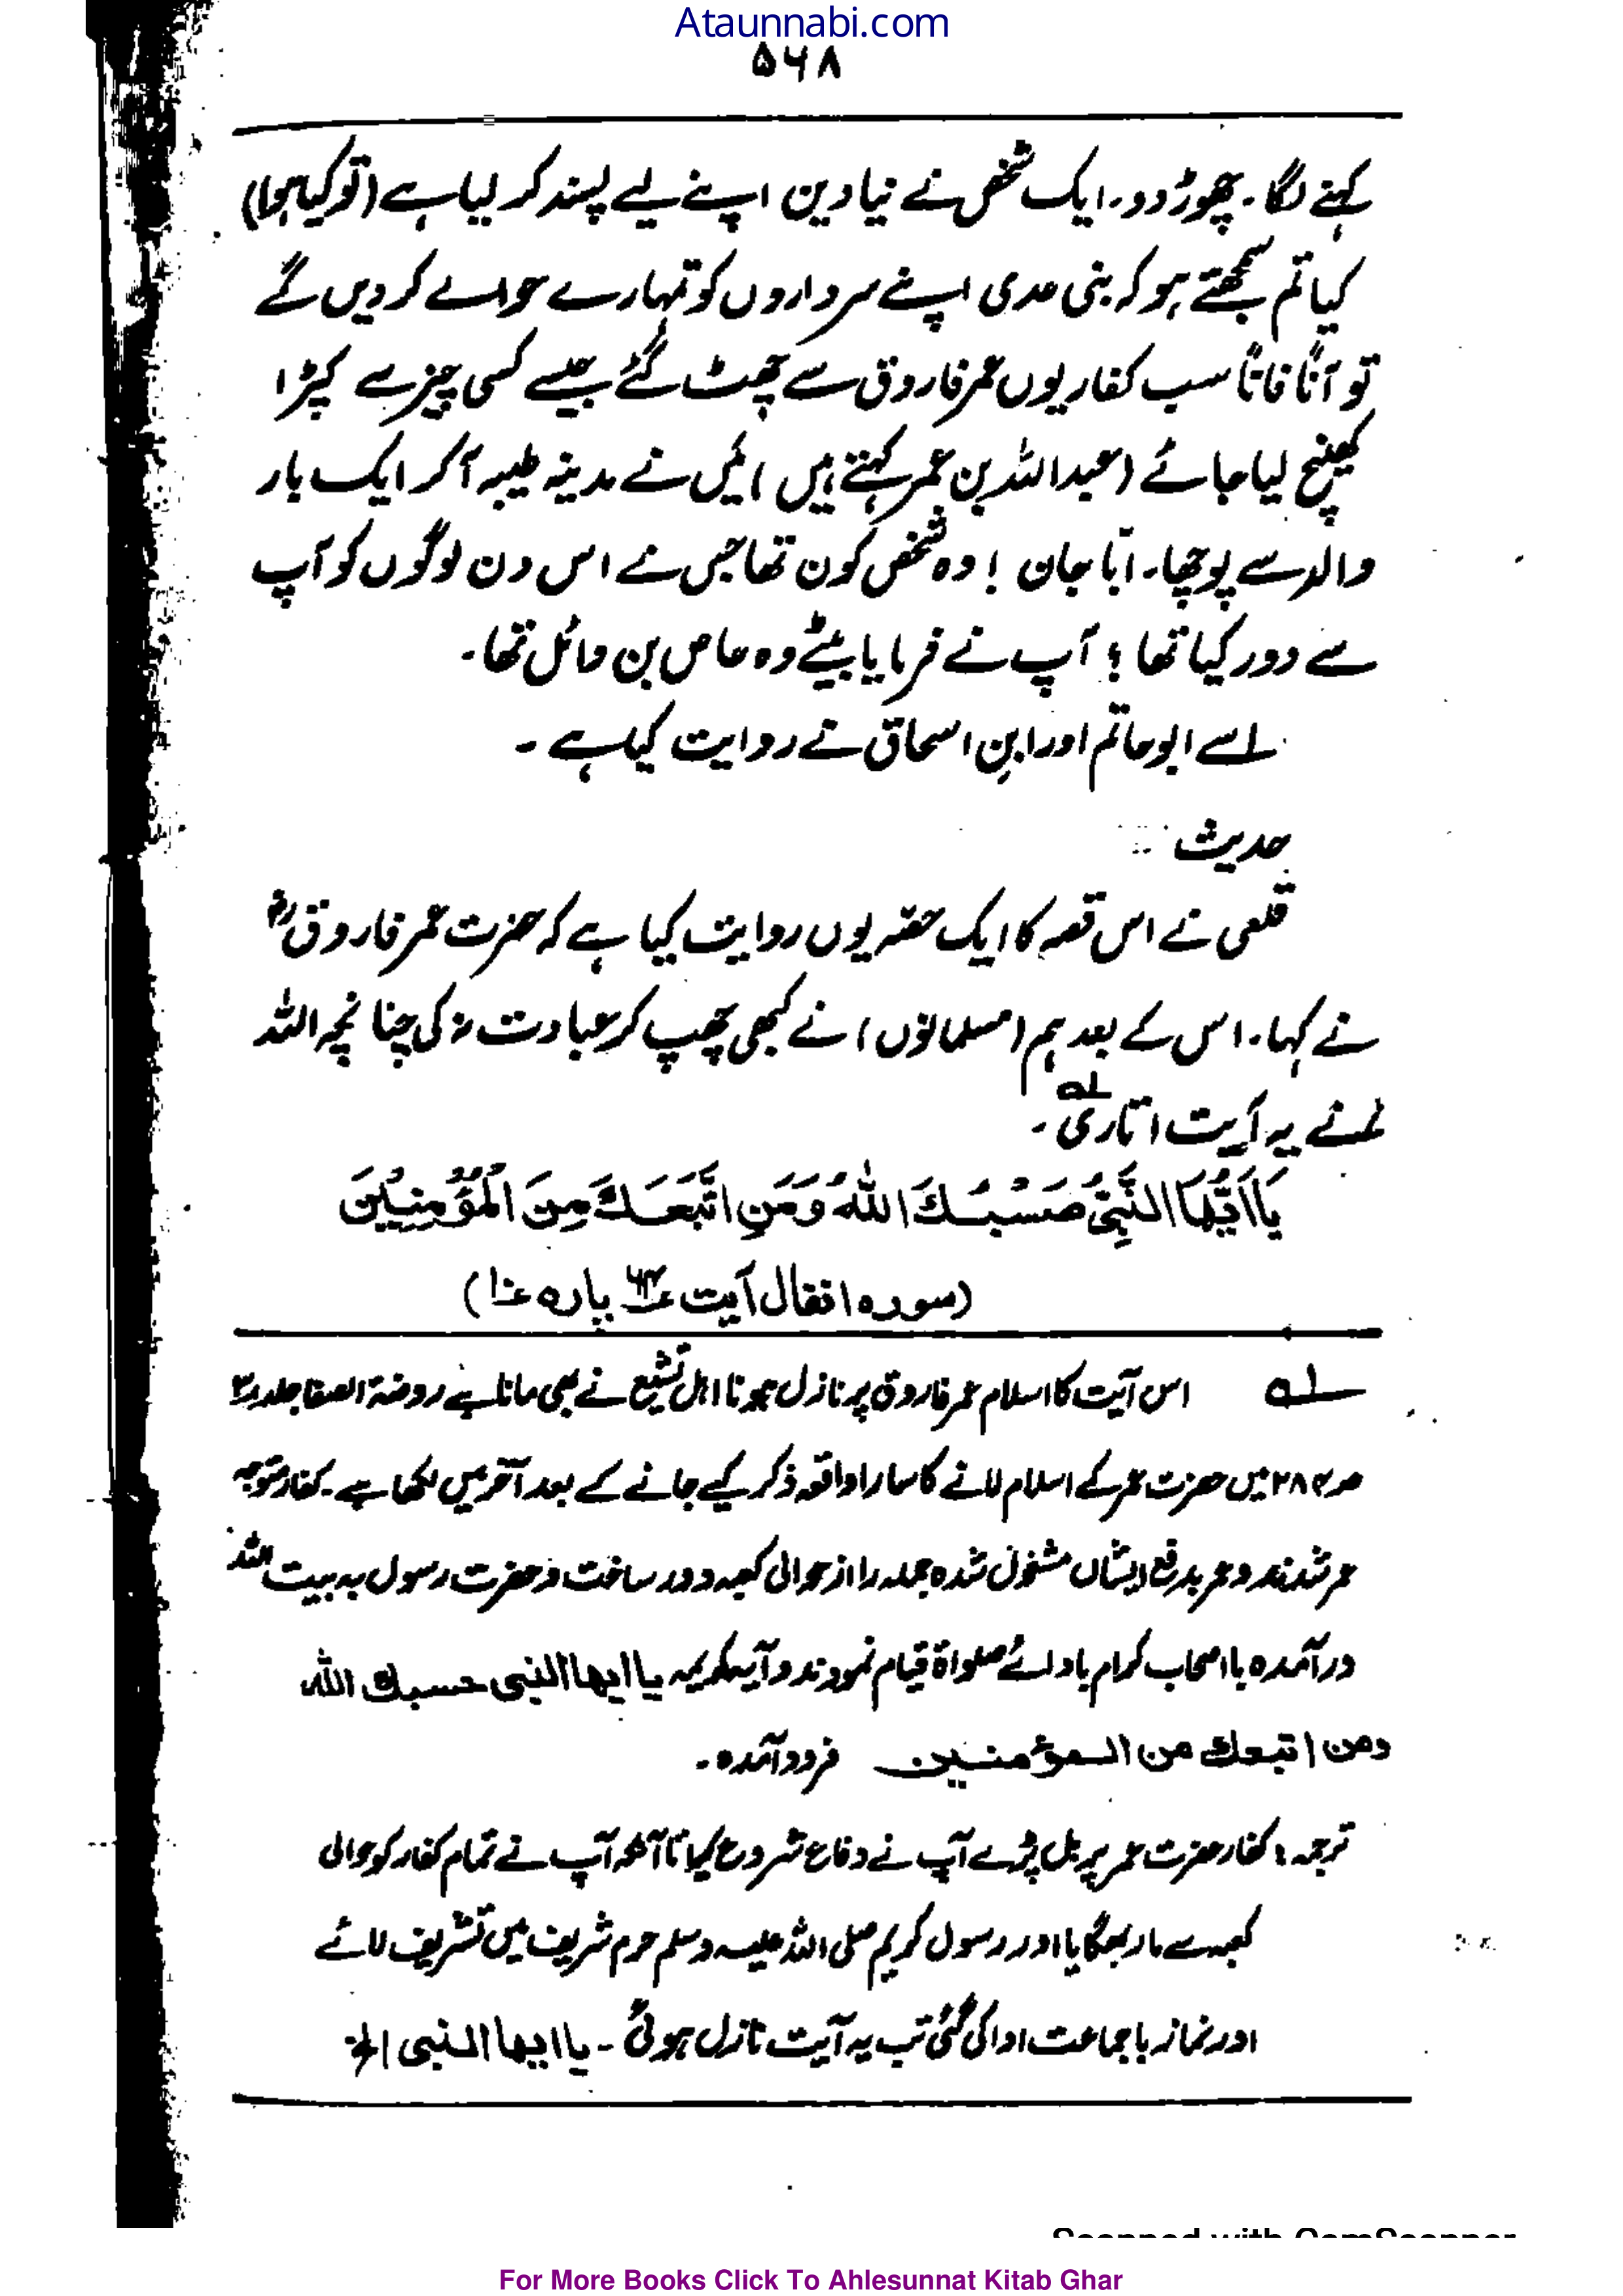 Ataunnabi.com
۵۶۸
کہنے لگا۔ چھوڑ دو۔ ایک شخص نے نیا دین اپنے لیے پسند کر لیا ہے (تو کیا ہوا)
کیا تم سمجھتے ہو کہ بنی عدی اپنے سرداروں کو تمہارے حوالے کر دیں گے
تو آناً فاناً سب کفار یوں عمر فاروق سے چھٹ گئے جیسے کسی چیز سے کپڑا
کھینچ لیا جائے (عبداللہ بن عمر کہتے ہیں) میں نے مدینہ طیبہ آ کر ایک بار
والد سے پوچھا۔ ابّا جان ! وہ شخص کون تھا جس نے اس دن لوگوں کو آپ
سے دور کیا تھا ؟ آپ نے فرمایا بیٹے وہ عاص بن وائل تھا۔
اسے ابو حاتم اور ابنِ اسحاق نے روایت کیا ہے ۔
حدیث
قلعی نے اس قصہ کا ایک حصّہ یوں روایت کیا ہے کہ حضرت عمر فاروق رض
نے کہا۔ اس کے بعد ہم (مسلمانوں) نے کبھی چھپ کر عبادت نہ کی چنانچہ اللہ
نے یہ آیت اتاری لہ ۔
یَا اَیُّہَا النَّبِیُّ حَسْبُکَ اللہُ وَمَنِ اتَّبَعَکَ مِنَ الْمُؤْمِنِیْنَ
(سورہ انفال آیت ۶۴ پارہ ۱۰)
لہ اس آیت کا اسلام عمر فاروق پر نازل ہونا اہل تشیع نے بھی مانا ہے روضۃ الصفا جلد ۲
ص ۲۸۴ میں حضرت عمر کے اسلام لانے کا سارا واقعہ ذکر کیے جانے کے بعد آخر میں لکھا ہے۔ کفار متوجہ
عمر شدند و عمر بدفع ایشاں مشغول شدہ جملہ را از حوالی کعبہ دور ساخت و حضرت رسول بہ بیت اللہ
در آمدہ با اصحاب کرام بادائے صلواۃ قیام نمودند و آیہ کریمہ یا ایھا النبی حسبک اللہ
ومن اتبعک من المؤمنین فرود آمدہ۔
ترجمہ: کفار حضرت عمر پر پل پڑے آپ نے دفاع شروع کیا تا آنکہ آپ نے تمام کفار کو حوالی
کعبہ سے مار بھگایا اور رسول کریم صلی اللہ علیہ وسلم حرم شریف میں تشریف لائے
اور نماز باجماعت ادا کی گئی تب یہ آیت نازل ہوئی ۔ یا ایھا النبی الخ
Scanned with CamScanner
For More Books Click To Ahlesunnat Kitab Ghar